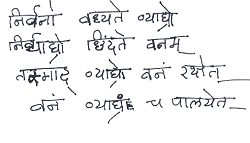 निर्वनो वध्यते व्याघ्रो
निर्व्याघ्रो छिद्यते वनम्
तस्माद् व्याघ्रो वनं रक्षेत्
वनं व्याघ्रं च पालयेत्